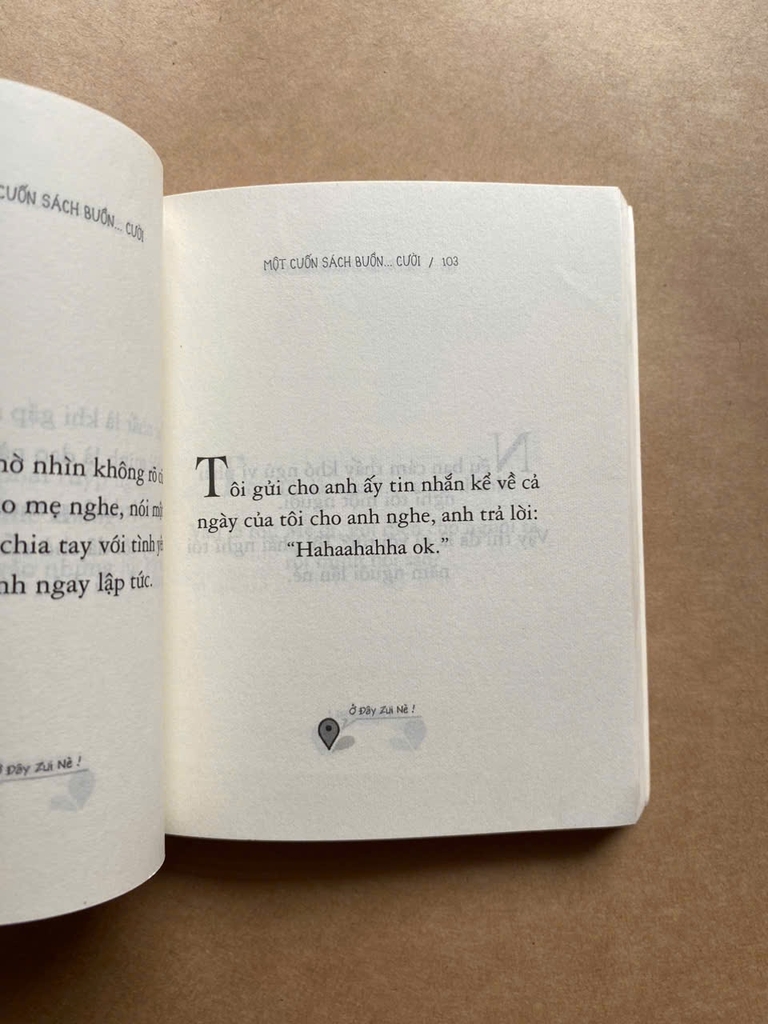 CUỐN SÁCH BUỒN... CƯỜI
nhìn không rõ
mẹ nghe, nói
chia tay với tình
ngay lập tức.
Đây Zui Nè !
MỘT CUỐN SÁCH BUỒN... CƯỜI / 103
Tôi gửi cho anh ấy tin nhắn kể về cả
ngày của tôi cho anh nghe, anh trả lời:
“Hahaahahha ok.”
Ở Đây Zui Nè !